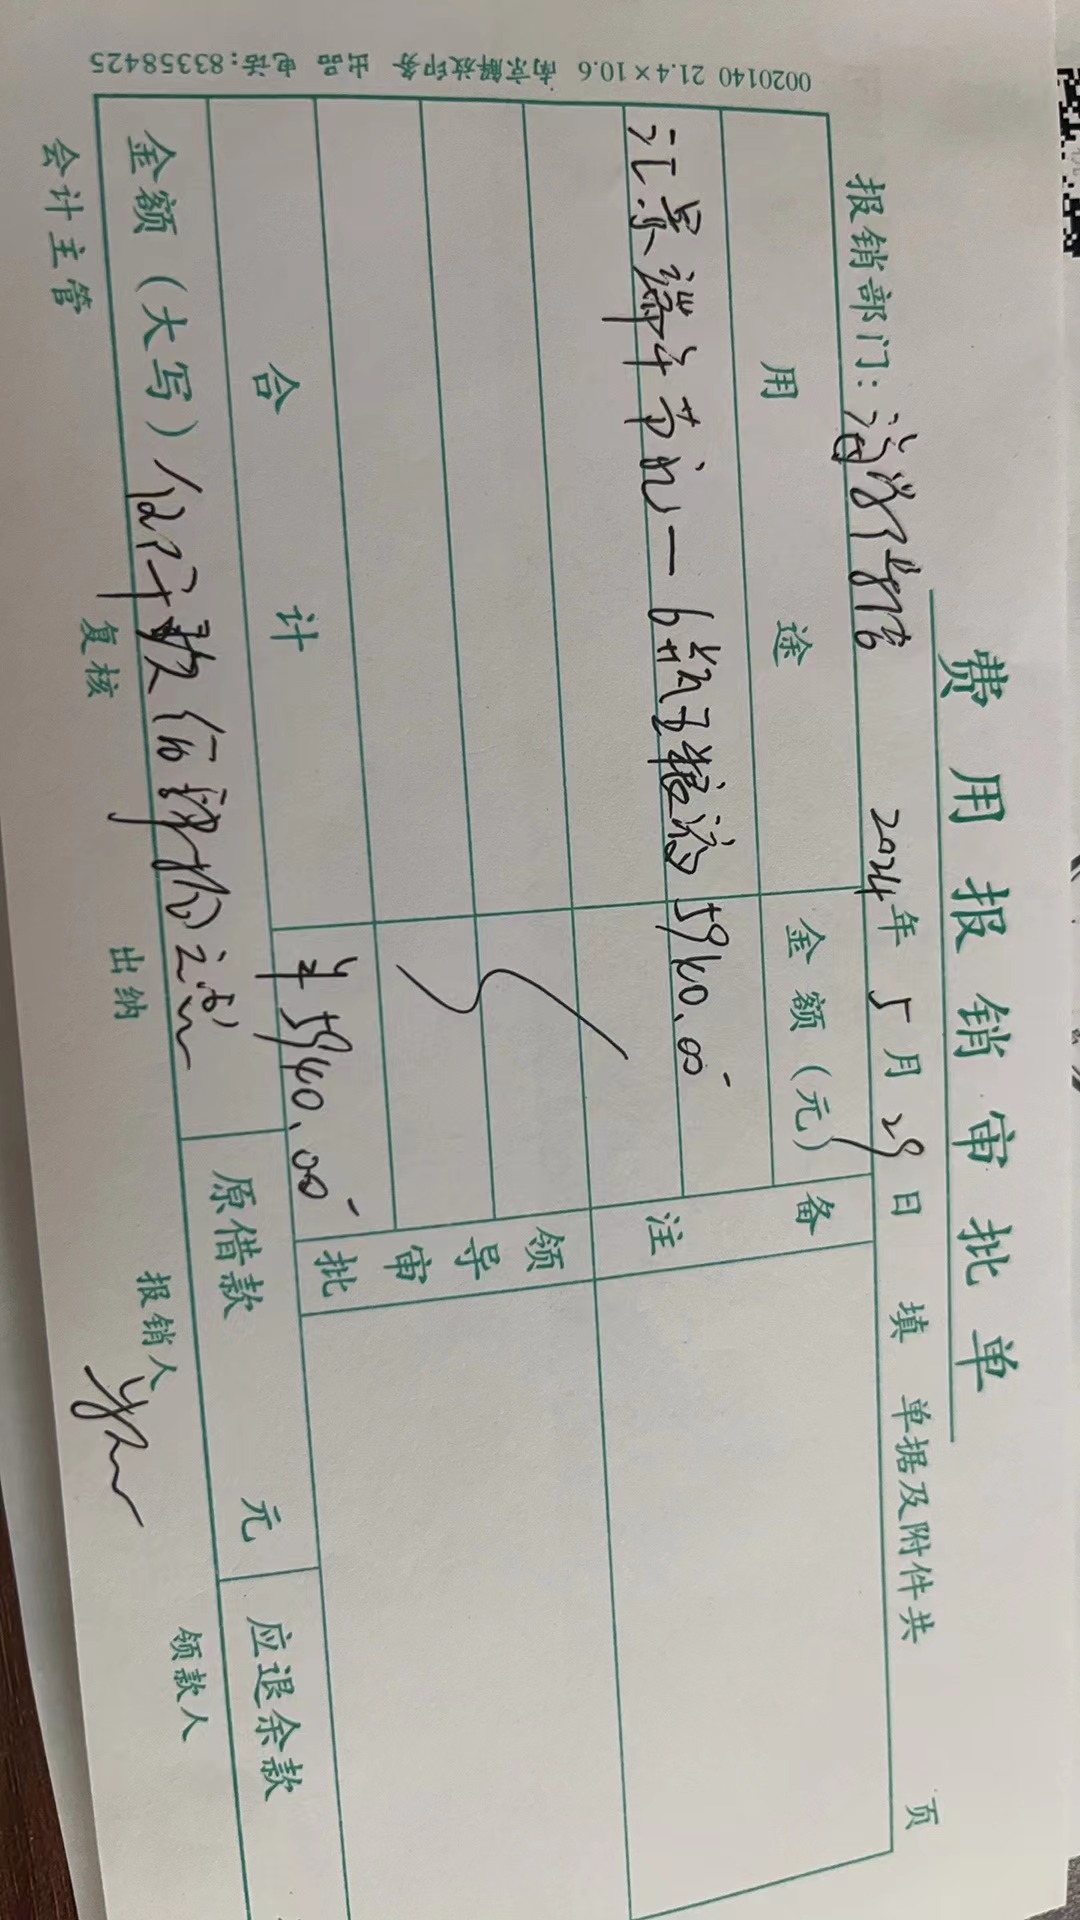 费用报销审批单
报销部门： 2024年5月29日填 单据及附件共 页
用途 金额（元） 备注
汇景端午节礼一6瓶五粮液 5940.00
领导审批
合计 ¥5940.00
金额（大写）伍仟玖佰肆拾元 原借款 元 应退余款
会计主管 复核 出纳 报销人 领款人
0020140 21.4×10.6 南京解放印务 出品 电话：83358425